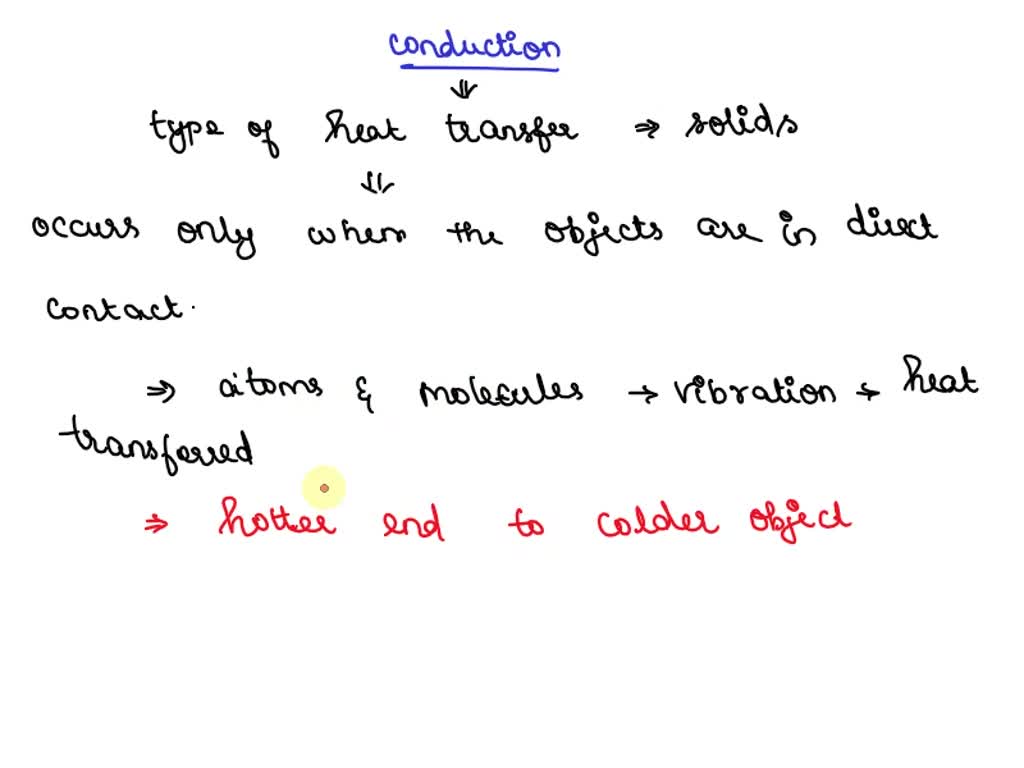 conduction
⇓
type of heat transfer ⇒ solids
⇓
occurs only when the objects are in direct
contact.
⇒ atoms & molecules → vibration → heat
transferred
⇒ hotter end to colder object